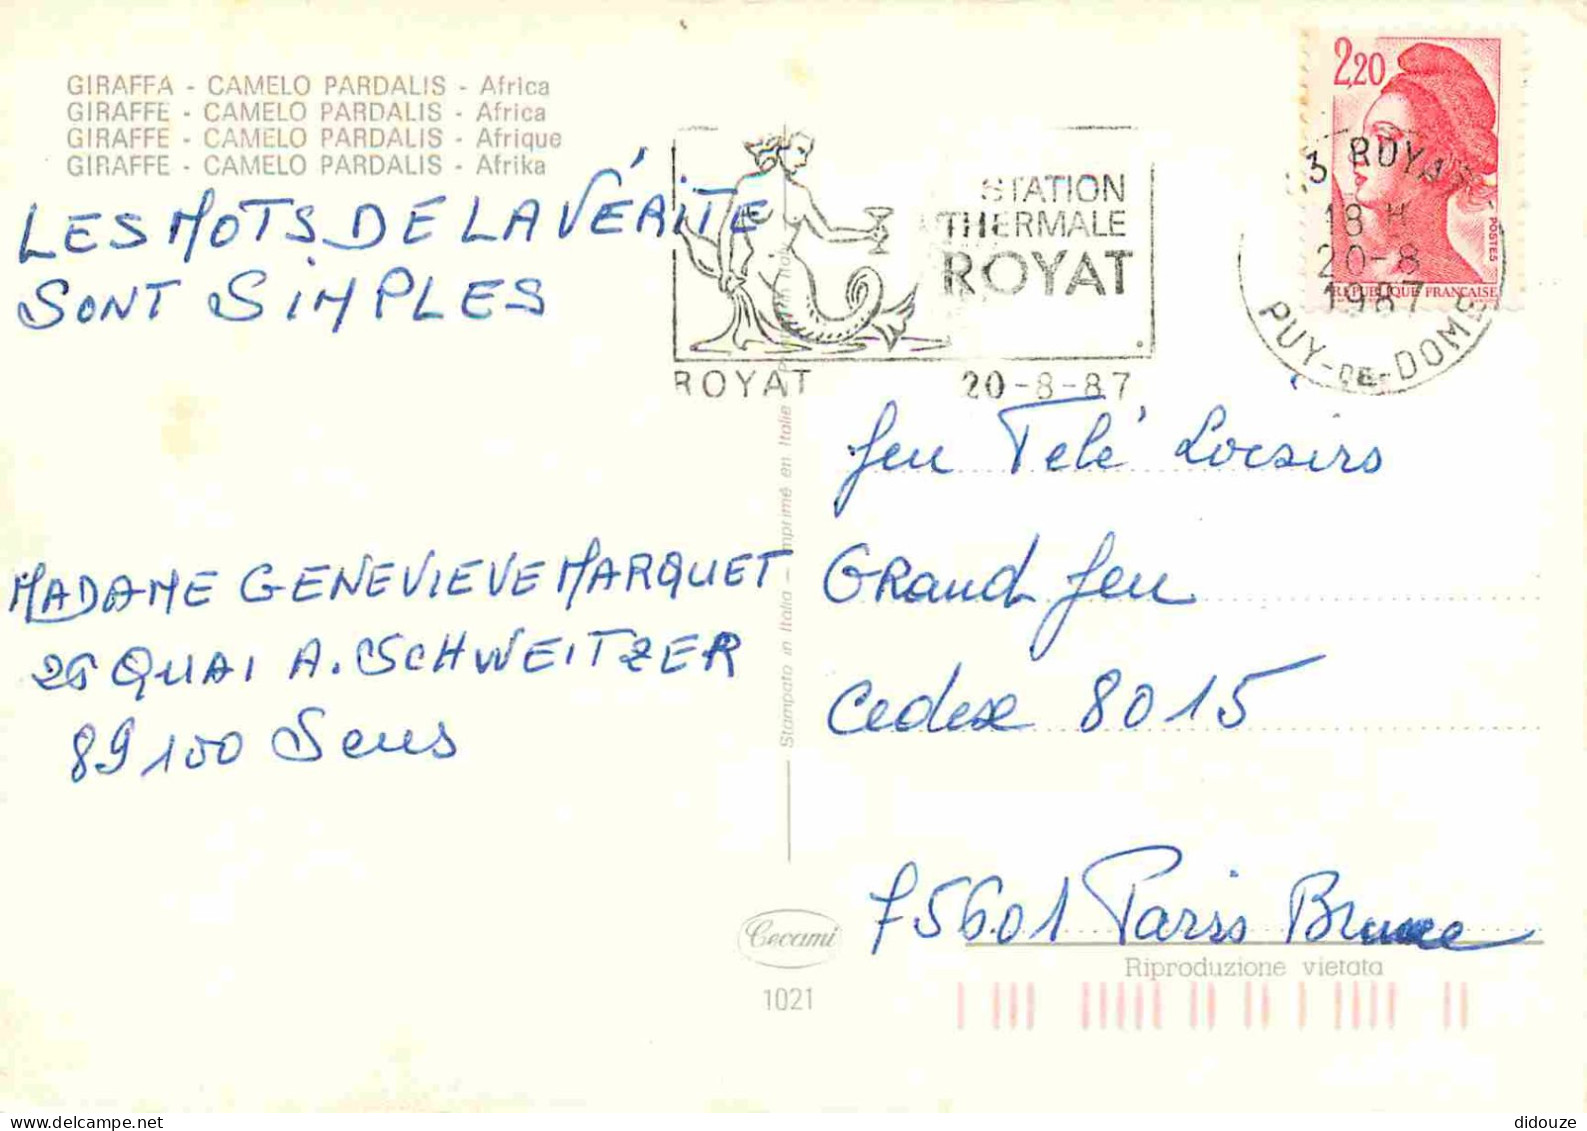 GIRAFFA - CAMELO PARDALIS - Africa
GIRAFFE - CAMELO PARDALIS - Africa
GIRAFFE - CAMELO PARDALIS - Afrique
GIRAFFE - CAMELO PARDALIS - Afrika
LES MOTS DE LA VÉRITE
SONT SIMPLES
STATION
THERMALE
ROYAT
ROYAT 20-8-87
2,20
POSTES
REPUBLIQUE FRANÇAISE
ROYAT
18 H
20-8
1987
PUY-DE-DOME
Jeu Telé Loisirs
Grand Jeu
Cedex 8015
75601 Paris Brune
MADAME GENEVIEVE MARQUET
26 QUAI A. SCHWEITZER
89100 Sens
Stampato in Italia - Imprimé en Italie
Cecami
1021
Riproduzione vietata
didouze